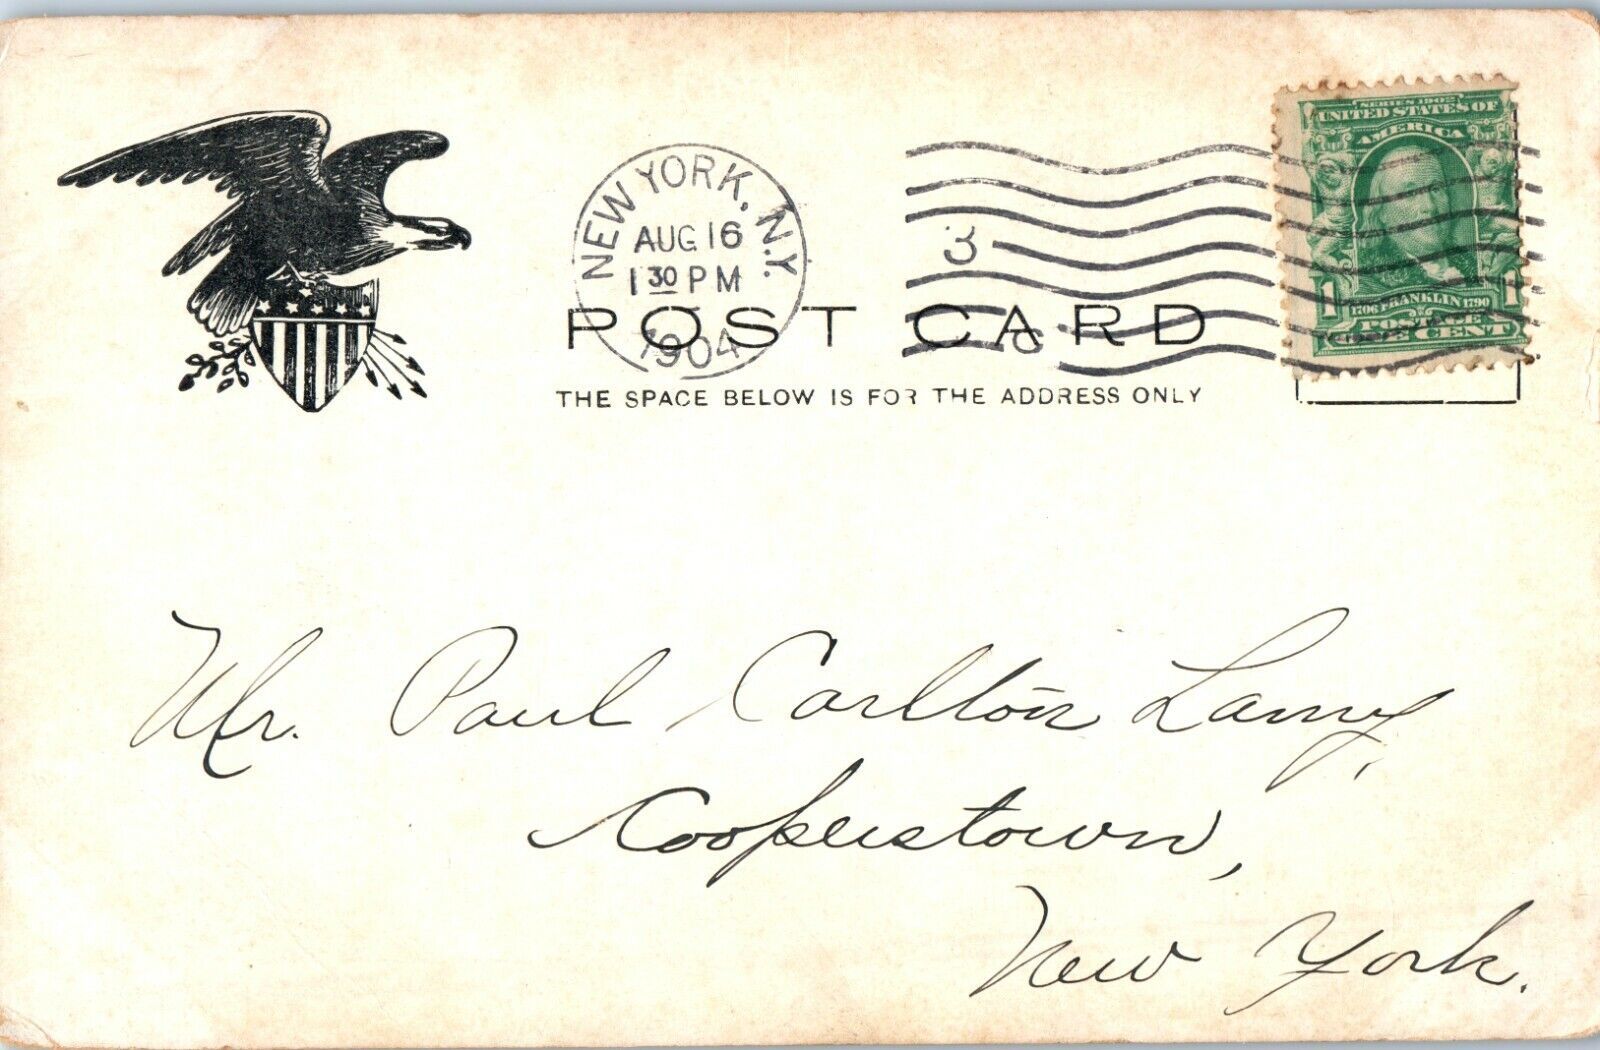 NEW YORK, N.Y.
AUG 16
1 30 PM
1904
3
SERIES 1902
UNITED STATES OF
AMERICA
1 1706 FRANKLIN 1790 1
POSTAGE
ONE CENT
POST CARD
THE SPACE BELOW IS FOR THE ADDRESS ONLY
Mr. Paul Carlton Lamy,
Cooperstown,
New York.